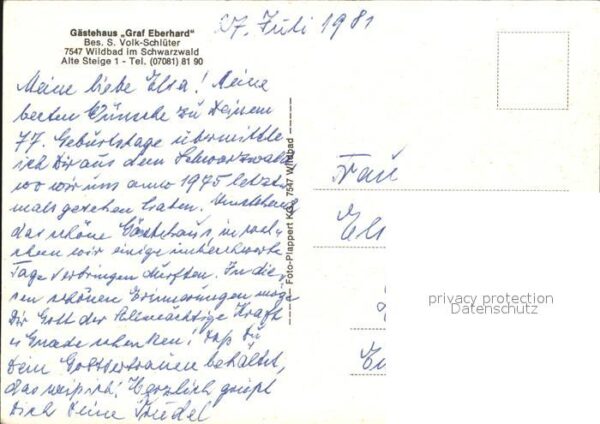 Gästehaus „Graf Eberhard"
Bes. S. Volk-Schlüter
7547 Wildbad im Schwarzwald
Alte Steige 1 - Tel. (07081) 81 90
27. Juli 1981
Meine liebe Elsa! Meine
besten Wünsche zu Deinem
77. Geburtstage übermittle
ich Dir aus dem Schwarzwald,
wo wir uns anno 1975 letzt-
mals gesehen haben. Umstehend
das schöne Gästehaus, in wel-
chem wir einige
Tage verbringen durften. In die-
sen schönen Erinnerungen möge
Dir Gott der Allmächtige Kraft
u Gnade schenken! Daß Du
Dein Gottvertrauen behältst,
das weiß ich! Herzlich grüßt
Dich Deine Trudel
Foto-Plappert KG., 7547 Wildbad
Frau
Els
privacy protection
Datenschutz